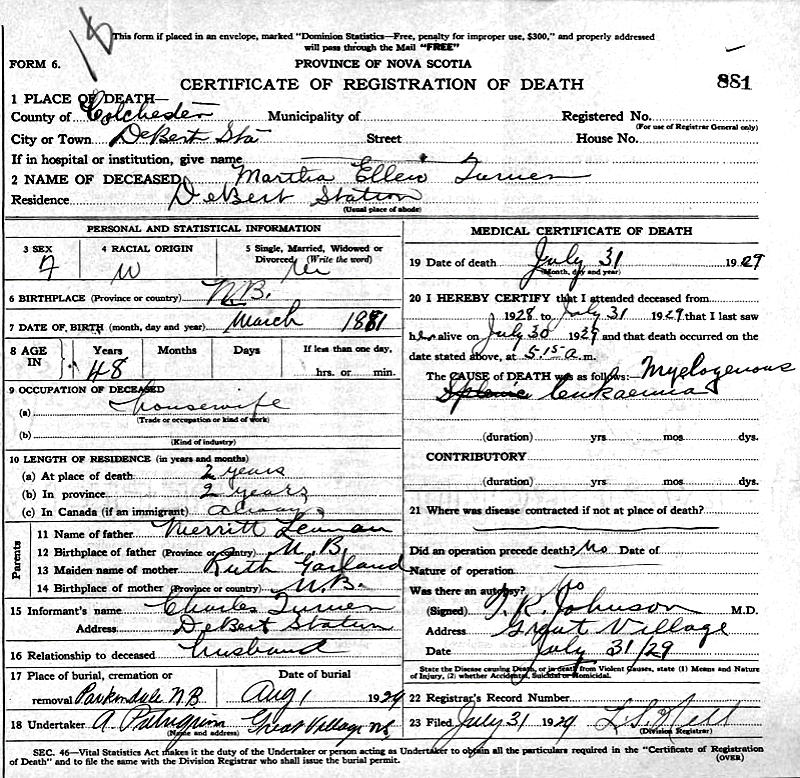 18
This form if placed in an envelope, marked "Dominion Statistics—Free, penalty for improper use, $300," and properly addressed
will pass through the Mail "FREE"
FORM 6.
PROVINCE OF NOVA SCOTIA
CERTIFICATE OF REGISTRATION OF DEATH
881
1 PLACE OF DEATH—
County of Colchester Municipality of Registered No.
(For use of Registrar General only)
City or Town DeBert Sta Street House No.
If in hospital or institution, give name
2 NAME OF DECEASED Martha Ellen Turner
Residence DeBert Station
(Usual place of abode)
PERSONAL AND STATISTICAL INFORMATION
3 SEX 4 RACIAL ORIGIN 5 Single, Married, Widowed or
Divorced (Write the word)
F W M
6 BIRTHPLACE (Province or country) N.B.
7 DATE OF BIRTH (month, day and year) March 1881
8 AGE IN Years Months Days If less than one day,
48 hrs. or min.
9 OCCUPATION OF DECEASED
(a) housewife
(Trade or occupation or kind of work)
(b)
(Kind of industry)
10 LENGTH OF RESIDENCE (in years and months)
(a) At place of death 2 years
(b) In province 2 years
(c) In Canada (if an immigrant) always
Parents
11 Name of father Merritt Leaman
12 Birthplace of father (Province or country) N.B.
13 Maiden name of mother Ruth Garland
14 Birthplace of mother (Province or country) N.B.
15 Informant's name Charles Turner
Address DeBert Station
16 Relationship to deceased husband
17 Place of burial, cremation or Date of burial
removal Parkindale N B Aug 1 1929
18 Undertaker A. Great Village NS
(Name and address)
MEDICAL CERTIFICATE OF DEATH
19 Date of death July 31 1929
(Month, day and year)
20 I HEREBY CERTIFY that I attended deceased from
1928 to July 31 1929 that I last saw
her alive on July 30 1929 and that death occurred on
date stated above, at 5-15 a. m.
The CAUSE of DEATH was as follows: Myelogenous
Splenic leukaemia
(duration) yrs mos dys.
CONTRIBUTORY
(duration) yrs mos. dys.
21 Where was disease contracted if not at place of death?
Did an operation precede death? No Date of
Nature of operation
Was there an autopsy? No
(Signed) T. R. Johnson M.D.
Address Great Village
Date July 31/29
State the Disease causing Death, or in death from Violent Causes, state (1) Means and Nature
of Injury, (2) whether Accidental, Suicidal or Homicidal.
22 Registrar's Record Number
23 Filed July 31 1929 L. S.
(Division Registrar)
SEC. 46—Vital Statistics Act makes it the duty of the Undertaker or person acting as Undertaker to obtain all the particulars required in the "Certificate of Registration
of Death" and to file the same with the Division Registrar who shall issue the burial permit.
(OVER)